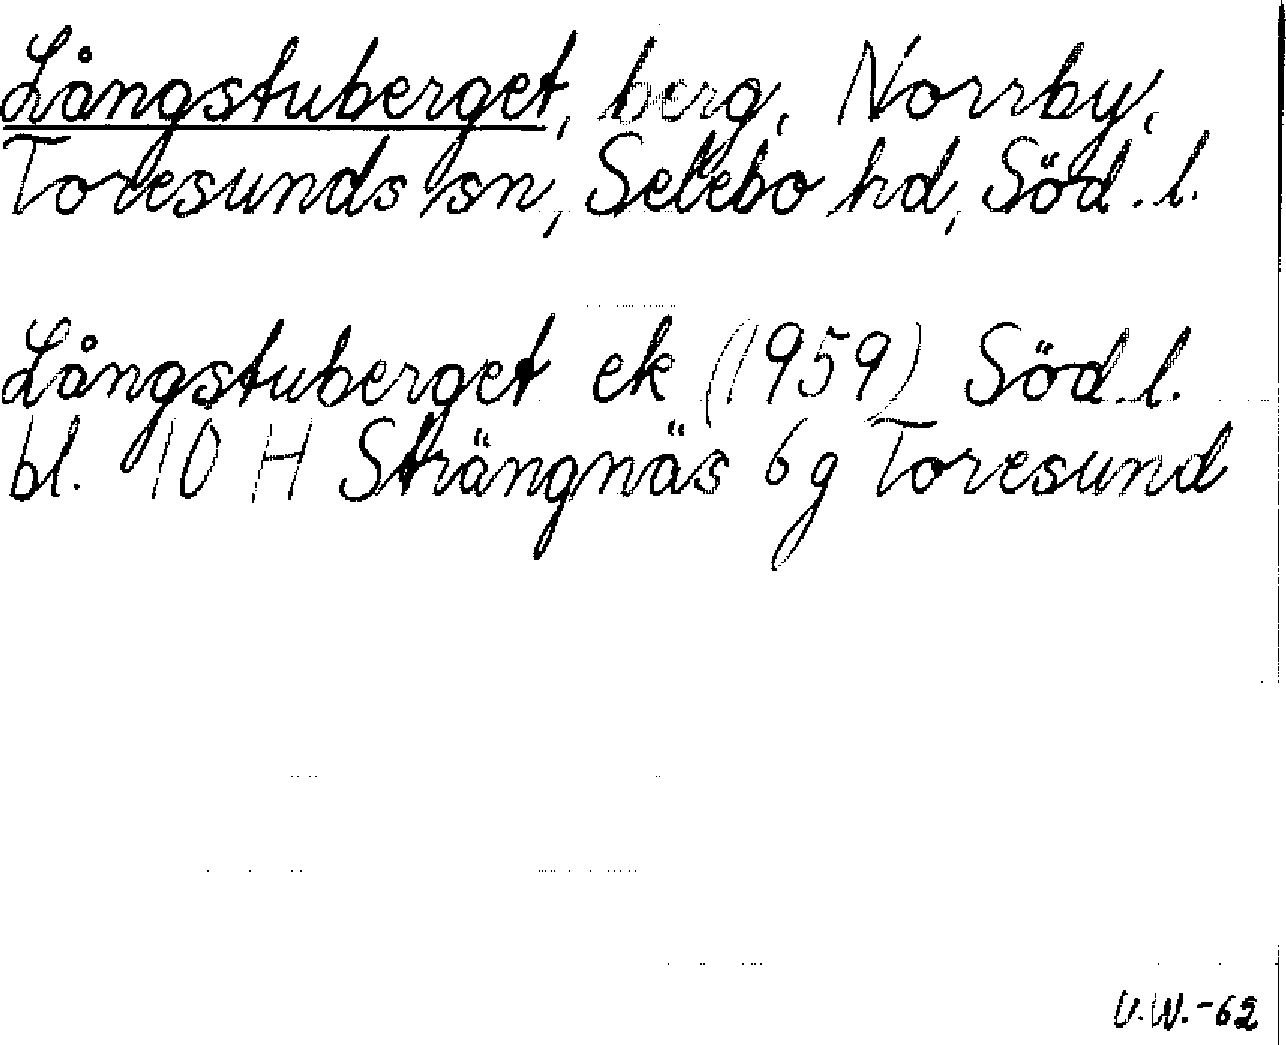 Långstuberget, berg, Norrby,
Toresunds sn, Selebo hd, Söd. l.
Långstuberget ek (1959) Söd. l.
bl. 10 H Strängnäs 6 g Toresund
V.W.-62